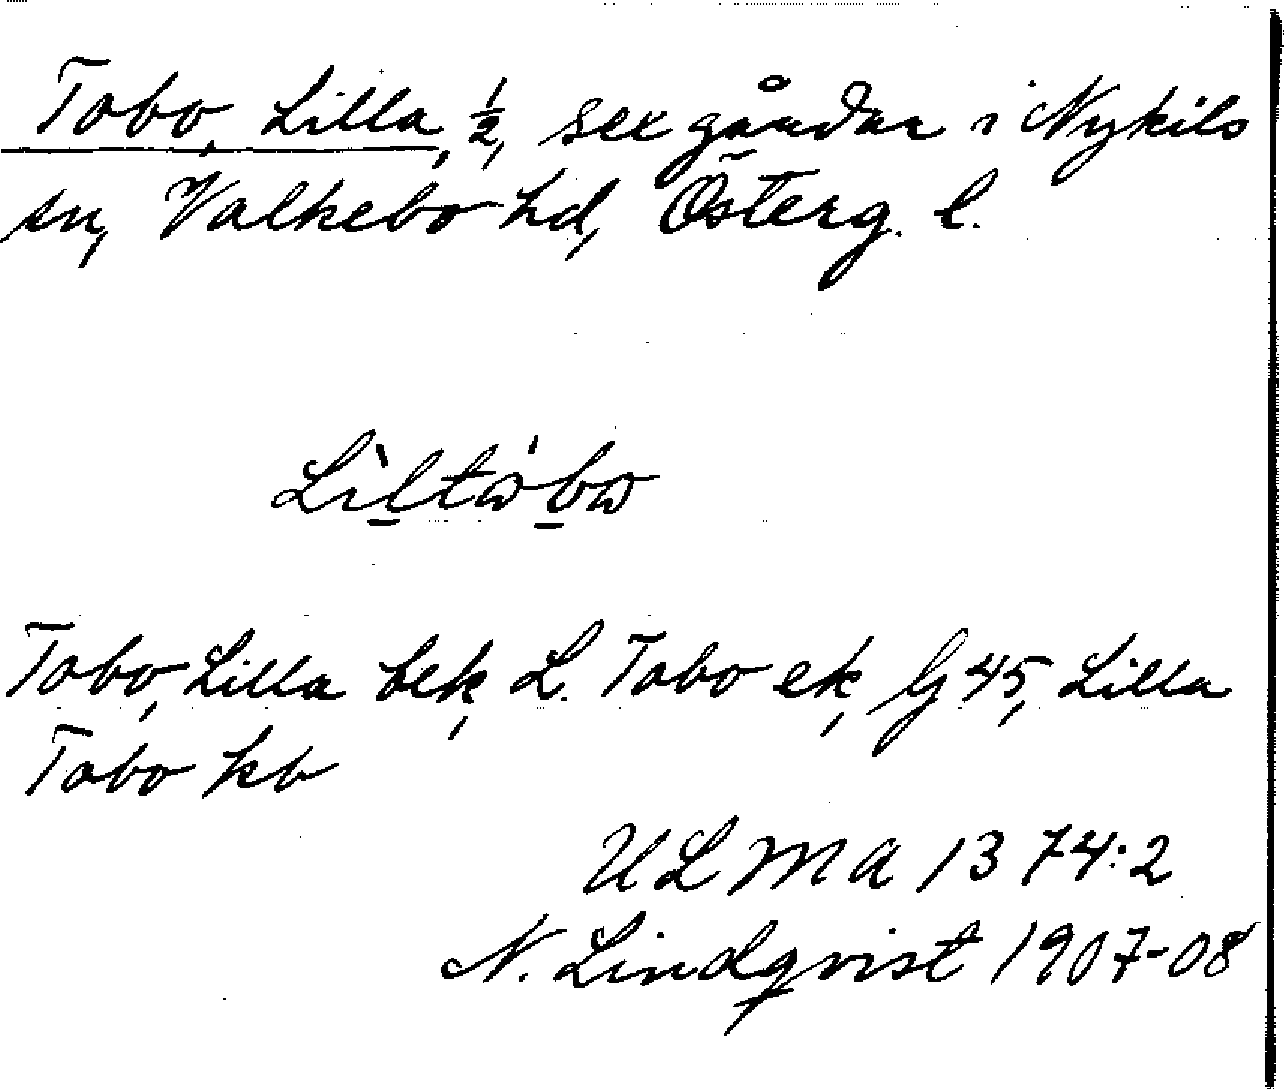 Tobo, Lilla, ½, sex gårdar i Nykils
sn, Valkebo hd, Österg. l.
Lìltω̍bω
Tobo, Lilla bek, L. Tobo ek, G 45, Lilla
Tobo kb
ULMA 1374:2
N. Lindqvist 1907-08